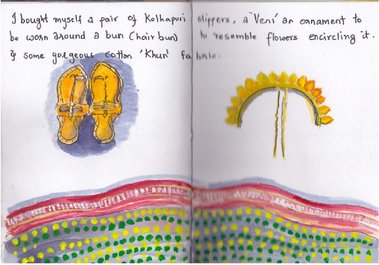 I bought myself a pair of Kolhapuri slippers, a 'Veni' an ornament to
be worn around a bun (hair bun) to resemble flowers encircling it.
& some gorgeous cotton 'Khun' fabric.